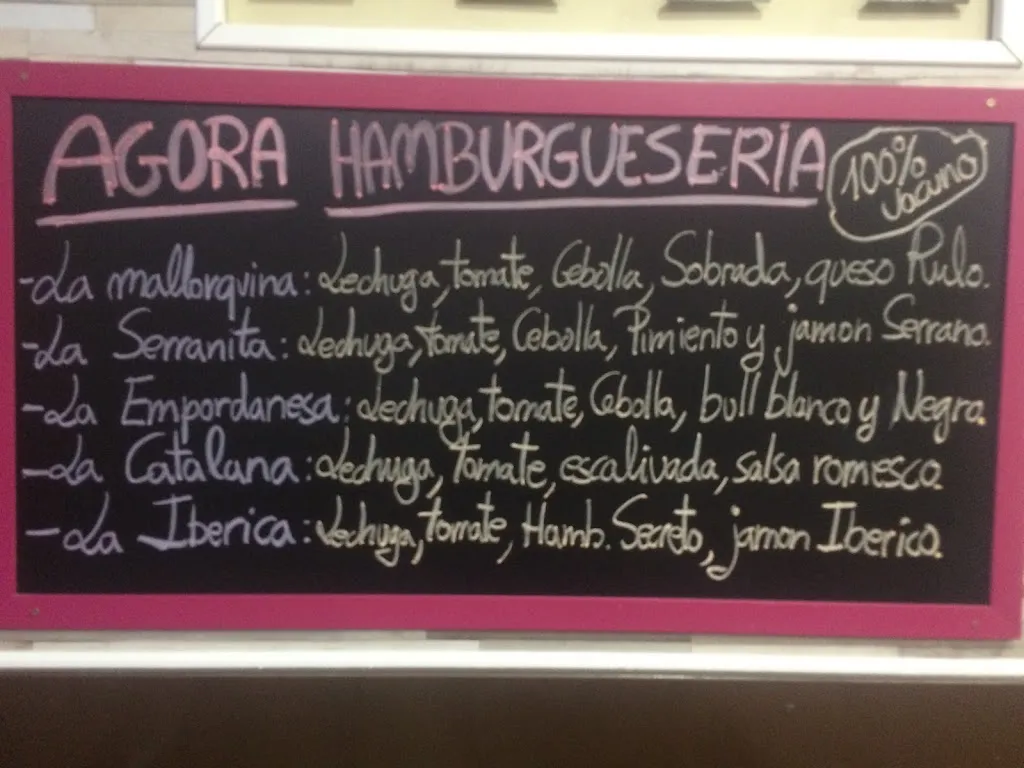 AGORA HAMBURGUESERIA
100% Vacuno
-La mallorquina: Lechuga, tomate, Cebolla, Sobrada, queso Rulo.
-La Serranita: Lechuga, tomate, Cebolla, Pimiento y jamon Serrano.
-La Empordanesa: Lechuga, tomate, Cebolla, bull blanco y Negro.
-La Catalana: Lechuga, Tomate, escalivada, salsa romesco.
-La Iberica: Lechuga, tomate, Hamb. Secreto, jamon Iberico.